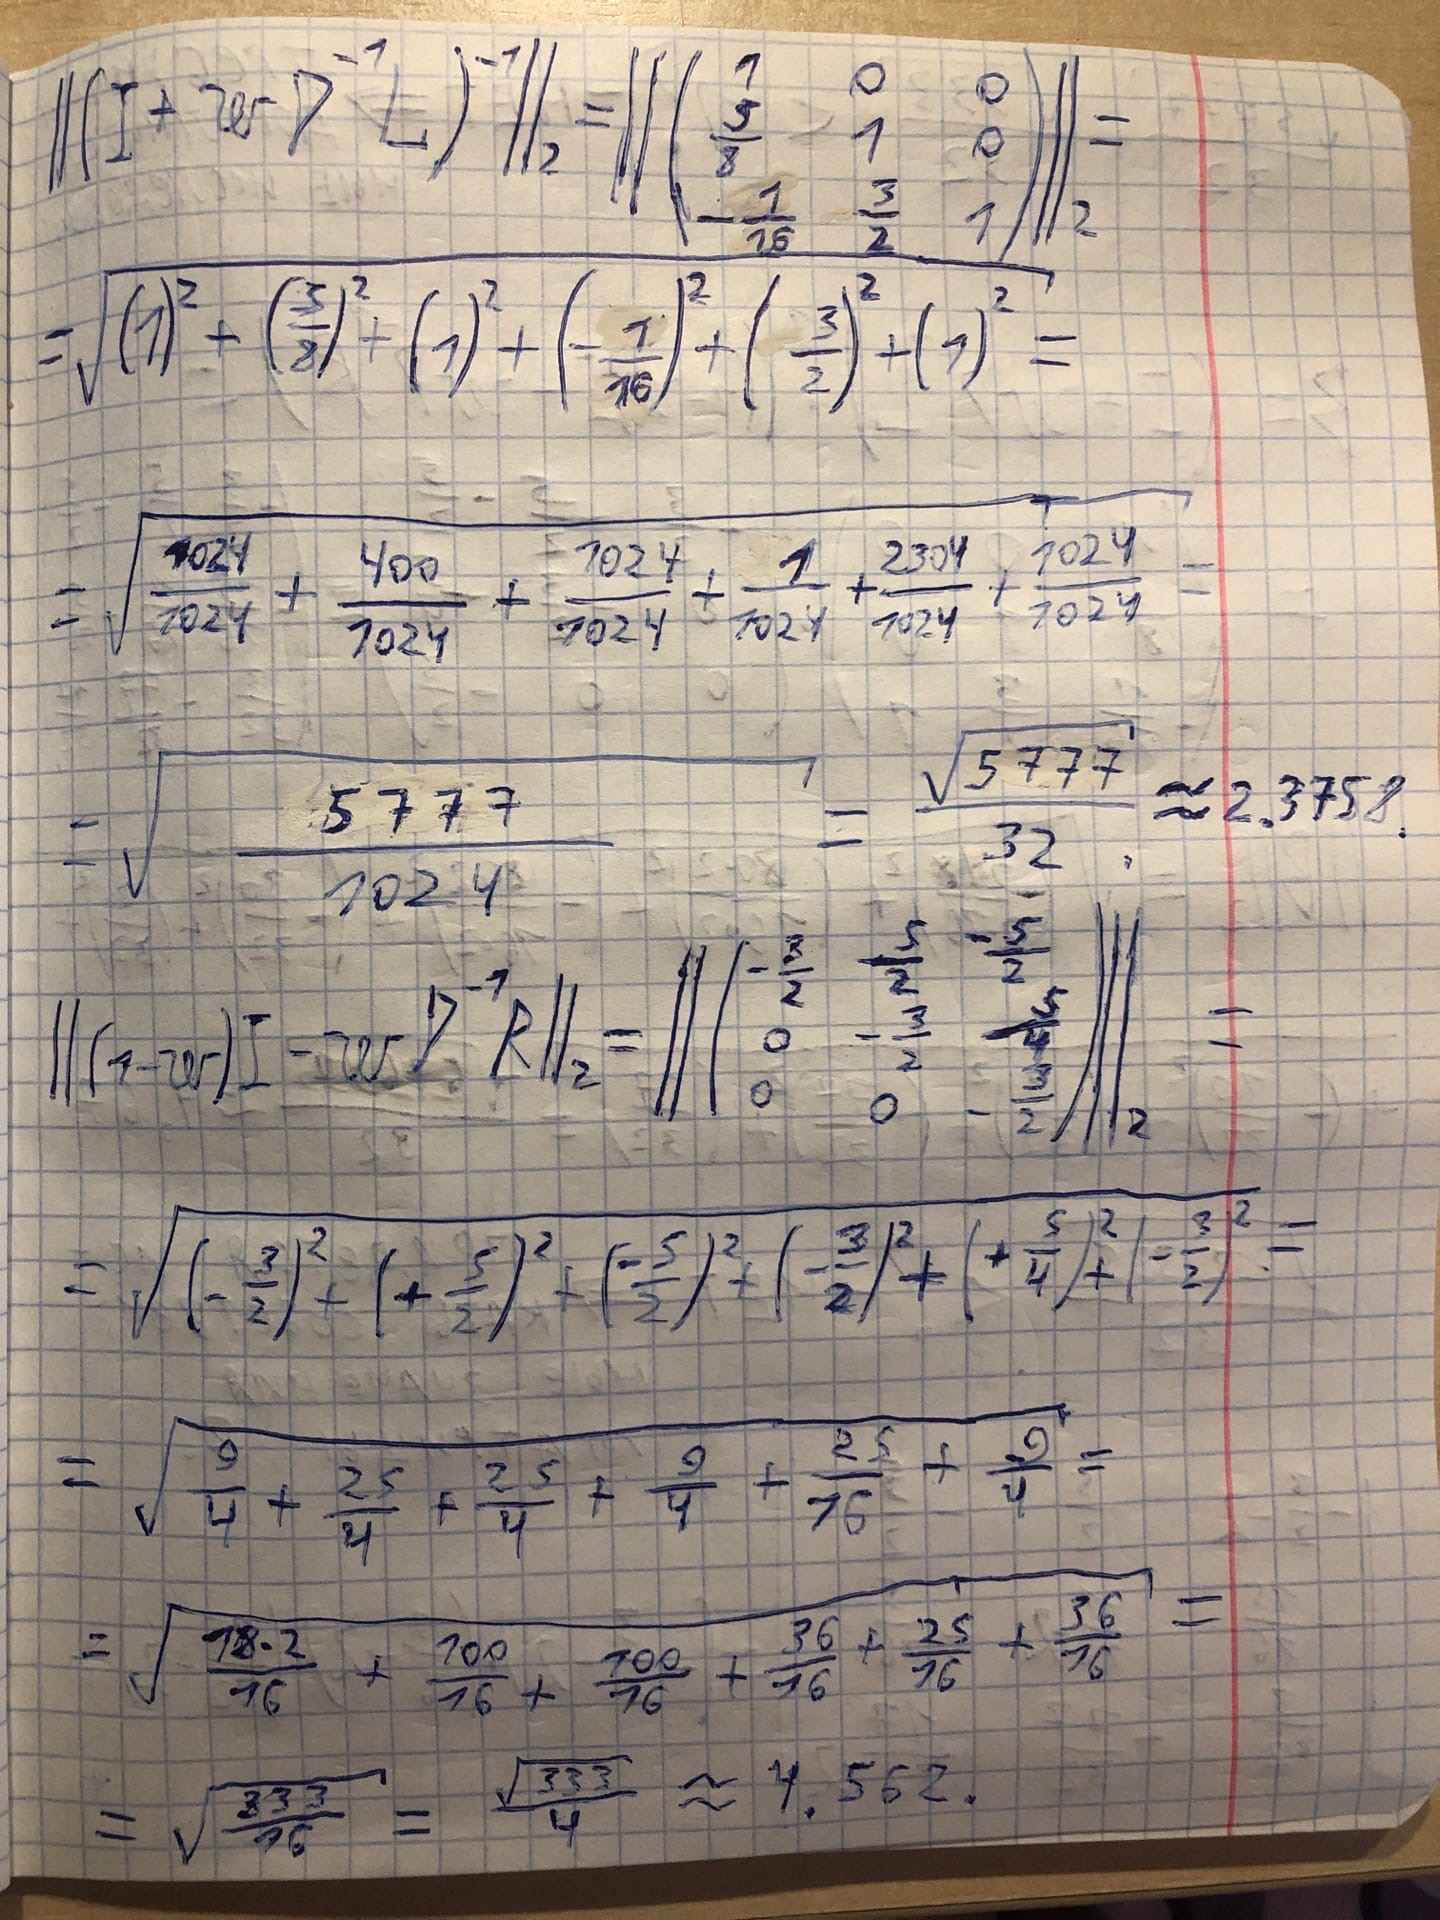 ‖(I + wD⁻¹L)⁻¹‖₂ = ‖( 1 0 0
5/8 1 0
-1/16 3/2 1 )‖₂ =
= √((1)² + (5/8)² + (1)² + (-1/16)² + (3/2)² + (1)²) =
= √(1024/1024 + 400/1024 + 1024/1024 + 1/1024 + 2304/1024 + 1024/1024) =
= √(5777/1024) = √5777/32 ≈ 2.3758.
‖(1-w)I - wD⁻¹R‖₂ = ‖( -3/2 5/2 -5/2
0 -3/2 5/4
0 0 -3/2 )‖₂ =
= √((-3/2)² + (+5/2)² + (-5/2)² + (-3/2)² + (+5/4)² + (-3/2)²) =
= √(9/4 + 25/4 + 25/4 + 9/4 + 25/16 + 9/4) =
= √(18·2/16 + 100/16 + 100/16 + 36/16 + 25/16 + 36/16) =
= √(333/16) = √333/4 ≈ 4.562.